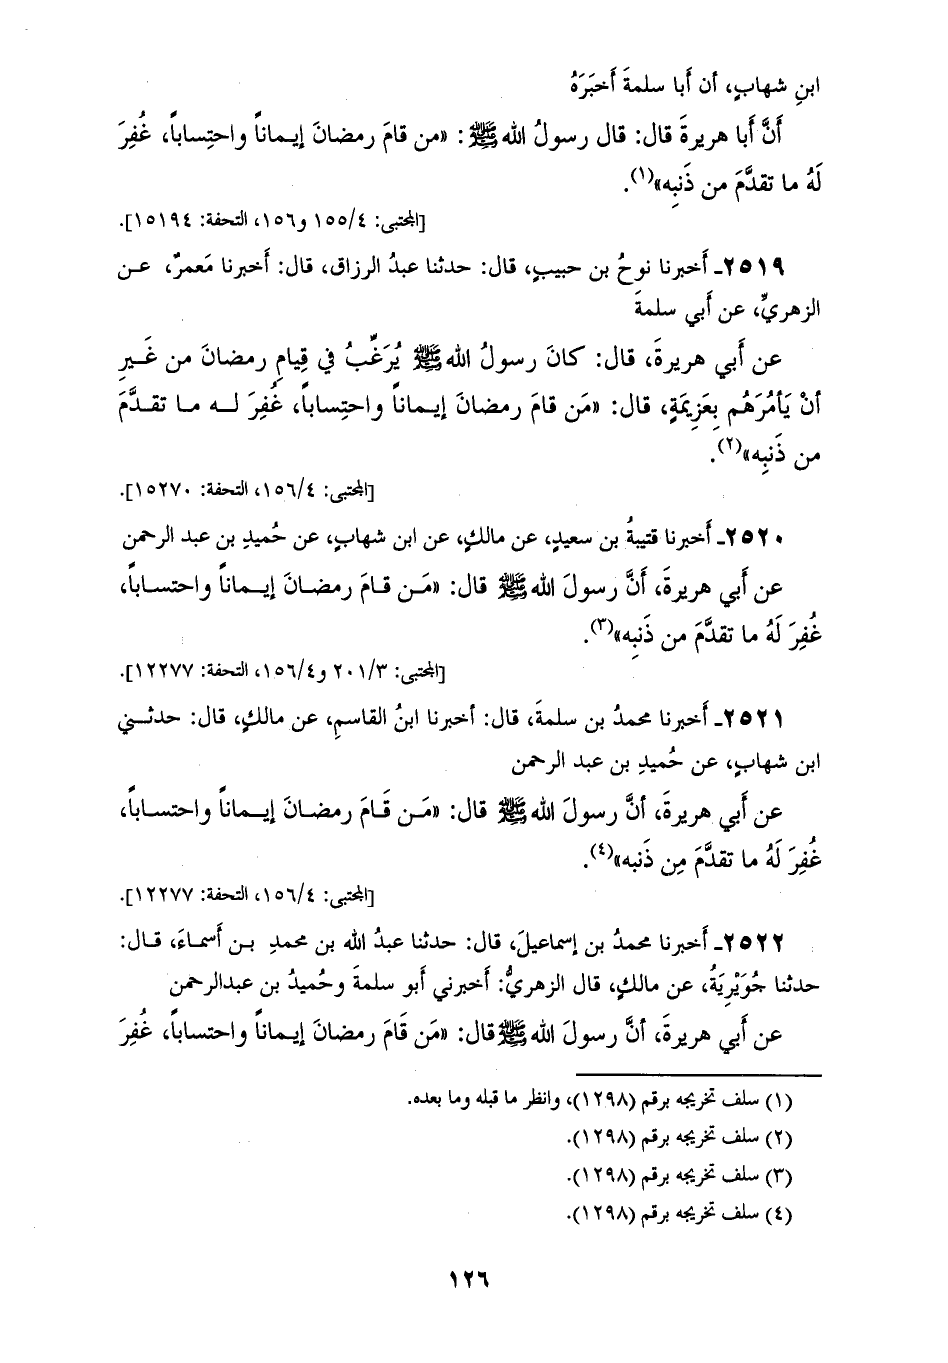 ابنِ شهابٍ، أن أَبا سلمةَ أَخبَرَهُ
أَنَّ أَبا هريرةَ قال: قال رسولُ الله ﷺ: «من قامَ رمضانَ إيماناً واحتِساباً، غُفِرَ
لَهُ ما تقدَّمَ من ذَنبِه»(١).
[المجتبى: ٤/١٥٥ و١٥٦، التحفة: ١٥١٩٤].
٢٥١٩ـ أَخبرنا نوحُ بن حبيبٍ، قال: حدثنا عبدُ الرزاق، قال: أَخبرنا مَعمرٌ، عن
الزهريِّ، عن أَبي سلمةَ
عن أَبي هريرةَ، قال: كانَ رسولُ الله ﷺ يُرَغِّبُ في قِيامِ رمضانَ من غَيرِ
أنْ يَأمُرَهُم بِعَزِيمَةٍ، قال: «مَن قامَ رمضانَ إيماناً واحتِساباً، غُفِرَ له ما تقدَّمَ
من ذَنبِه»(٢).
[المجتبى: ٤/١٥٦، التحفة: ١٥٢٧٠].
٢٥٢٠ـ أَخبرنا قتيبةُ بن سعيدٍ، عن مالكٍ، عن ابن شهابٍ، عن حُميدِ بن عبد الرحمن
عن أَبي هريرةَ، أَنَّ رسولَ الله ﷺ قال: «مَن قامَ رمضانَ إيماناً واحتساباً،
غُفِرَ لَهُ ما تقدَّمَ من ذَنبِه»(٣).
[المجتبى: ٣/٢٠١ و٤/١٥٦، التحفة: ١٢٢٧٧].
٢٥٢١ـ أَخبرنا محمدُ بن سلمةَ، قال: أخبرنا ابنُ القاسمِ، عن مالكٍ، قال: حدثني
ابن شهابٍ، عن حُميدِ بن عبد الرحمن
عن أَبي هريرةَ، أنَّ رسولَ الله ﷺ قال: «مَن قَامَ رمضانَ إيماناً واحتساباً،
غُفِرَ لَهُ ما تقدَّمَ مِن ذَنبه»(٤).
[المجتبى: ٤/١٥٦، التحفة: ١٢٢٧٧].
٢٥٢٢ـ أَخبرنا محمدُ بن إسماعيلَ، قال: حدثنا عبدُ الله بن محمدِ بن أَسماءَ، قال:
حدثنا جُوَيْرِيَةُ، عن مالكٍ، قال الزهريُّ: أَخبرني أَبو سلمةَ وحُميدُ بن عبدالرحمن
عن أَبي هريرةَ، أنَّ رسولَ الله ﷺ قال: «مَن قَامَ رمضانَ إيماناً واحتساباً، غُفِرَ
(١) سلف تخريجه برقم (١٢٩٨)، وانظر ما قبله وما بعده.
(٢) سلف تخريجه برقم (١٢٩٨).
(٣) سلف تخريجه برقم (١٢٩٨).
(٤) سلف تخريجه برقم (١٢٩٨).
١٢٦